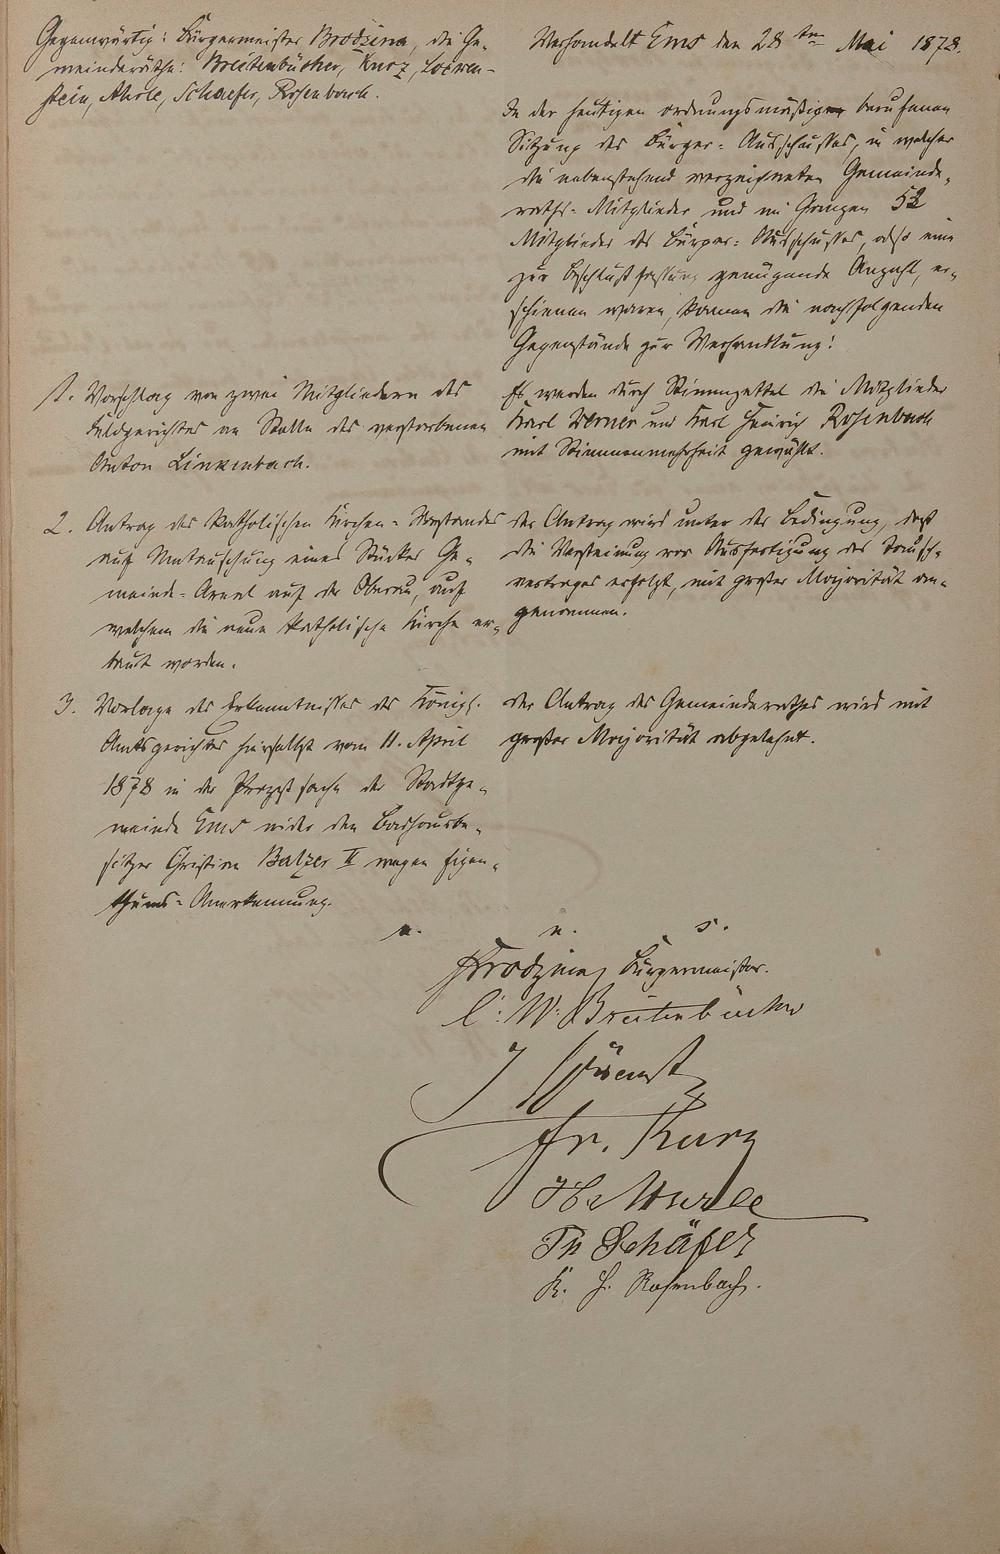 Gegenwärtig: Bürgermeister Brodzina, die Ge-
meinderäthe: Breitenbücher, Kurz, Loewen-
stein, Ahrle, Schaefer, Rosenbach.
Verhandelt Ems den 28ten Mai 1878.
In der heutigen ordnungsmäßig berufenen
Sitzung des Bürger-Ausschusses, in welcher
die nebenstehend verzeichneten Gemeinde-
raths-Mitglieder und im Ganzen 52
Mitglieder des Bürger-Ausschusses, also eine
zur Beschlußfassung genügende Anzahl, er-
schienen waren, kamen die nachfolgenden
Gegenstände zur Verhandlung:
1. Vorschlag von zwei Mitgliedern des
Feldgerichtes an Stelle des verstorbenen
Anton Linkenbach.
Es werden durch Stimmzettel die Mitglieder
Karl Werner und Karl Heinrich Rosenbach
mit Stimmenmehrheit gewählt.
2. Antrag des katholischen Kirchen-Vorstandes
auf Umtauschung eines Stückes Ge-
meinde-Areal auf der Oberau, auf
welchem die neue katholische Kirche er-
baut worden.
der Antrag wird unter der Bedingung, daß
die Versteinung vor Ausfertigung des Tausch-
vertrages erfolgt, mit großer Majorität an-
genommen.
3. Vorlage des Erkenntnisses des Königl.
Amtsgerichtes hierselbst vom 11. April
1878 in der Prozeßsache der Stadtge-
meinde Ems wider den Badhausbe-
sitzer Christian Balzer II wegen Eigen-
thums-Anerkennung.
der Antrag des Gemeinderathes wird mit
großer Majorität abgelehnt.
v. u. s.
Brodzina, Bürgermeister.
C: W: Breitenbücher
J
Fr. Kurz
Th Schäfer
K. H. Rosenbach.